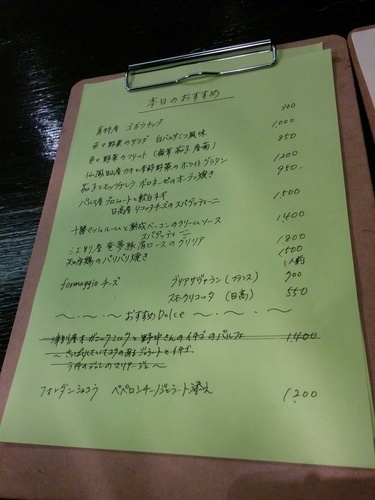 本日のおすすめ
真狩産 ゴボウチップ 300
色々野菜のサラダ 白バルサミコ風味 1,000
色々野菜のフリット 850
カキと冬野菜のホワイトグラタン 1200
茄子とモッツァレラ、ボロネーゼのオーブン焼き 950
パルマ産プロシュートと軟白ネギ
日高産リコッタチーズのスパゲッティーニ 1,500
十勝マッシュルームと熟成ベーコンのクリームソース
スパゲッティーニ 1,400
豚肩ロースのグリリア 1,800
知床鶏のパリパリ焼き 1500
1人前
formaggio チーズ ブリアサヴァラン (フランス) 900
スモークリコッタ (日高) 550
おすすめDolce
オーガニックミルクと野中さんのイチゴのパルフェ 1,400
フォンダンショコラ ペペロンチーノジェラート添え 1,200